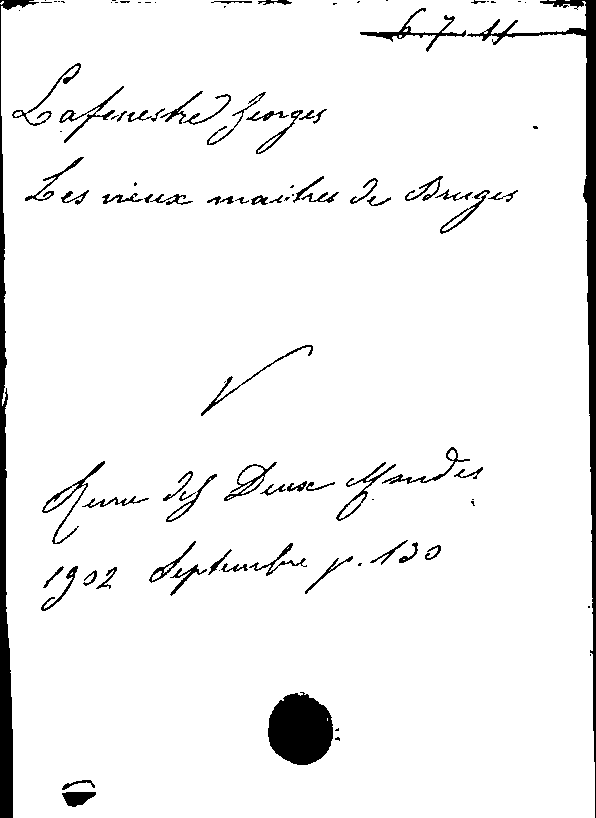 6.7.11
Lafenestre Georges
Les vieux maîtres de Bruges
V
Revue des Deux Mondes
1902 Septembre p. 130